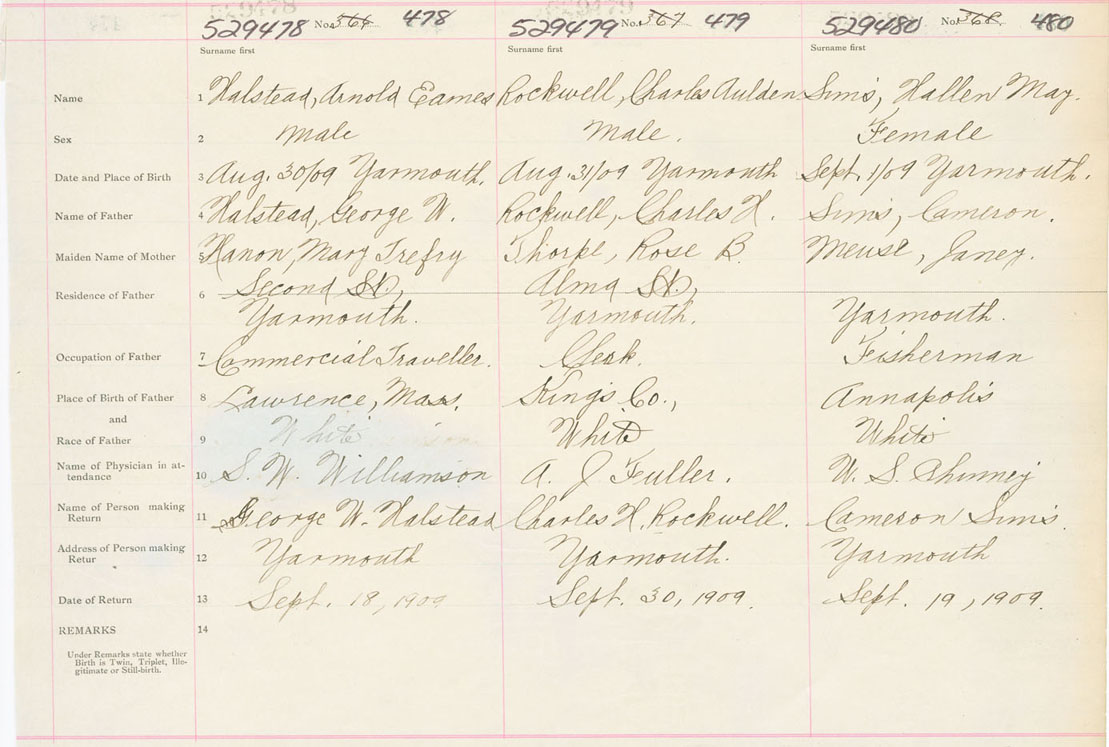 529478 No. 366 478 529479 No. 367 479 529480 No. 368 480
Surname first Surname first Surname first
Name 1 Halstead, Arnold Eames Rockwell, Charles Aulden Sims, Hallen May.
Sex 2 Male Male. Female
Date and Place of Birth 3 Aug. 30/09 Yarmouth. Aug. 31/09 Yarmouth Sept. 1/09 Yarmouth.
Name of Father 4 Halstead, George W. Rockwell, Charles H. Sims, Cameron.
Maiden Name of Mother 5 Hanon, Mary Trefry Thorpe, Rose B. Meuse, Janey.
Residence of Father 6 Second St., Alma St.,
Yarmouth. Yarmouth. Yarmouth.
Occupation of Father 7 Commercial Traveller. Clerk. Fisherman
Place of Birth of Father 8 Lawrence, Mass. Kings Co., Annapolis
and
Race of Father 9 White White White
Name of Physician in at-
tendance 10 S. W. Williamson A. J. Fuller. W. S.
Name of Person making
Return 11 George W. Halstead Charles H. Rockwell. Cameron Sims.
Address of Person making
Retur 12 Yarmouth Yarmouth. Yarmouth
Date of Return 13 Sept. 18, 1909 Sept. 30, 1909. Sept. 19, 1909.
REMARKS 14
Under Remarks state whether
Birth is Twin, Triplet, Ille-
gitimate or Still-birth.